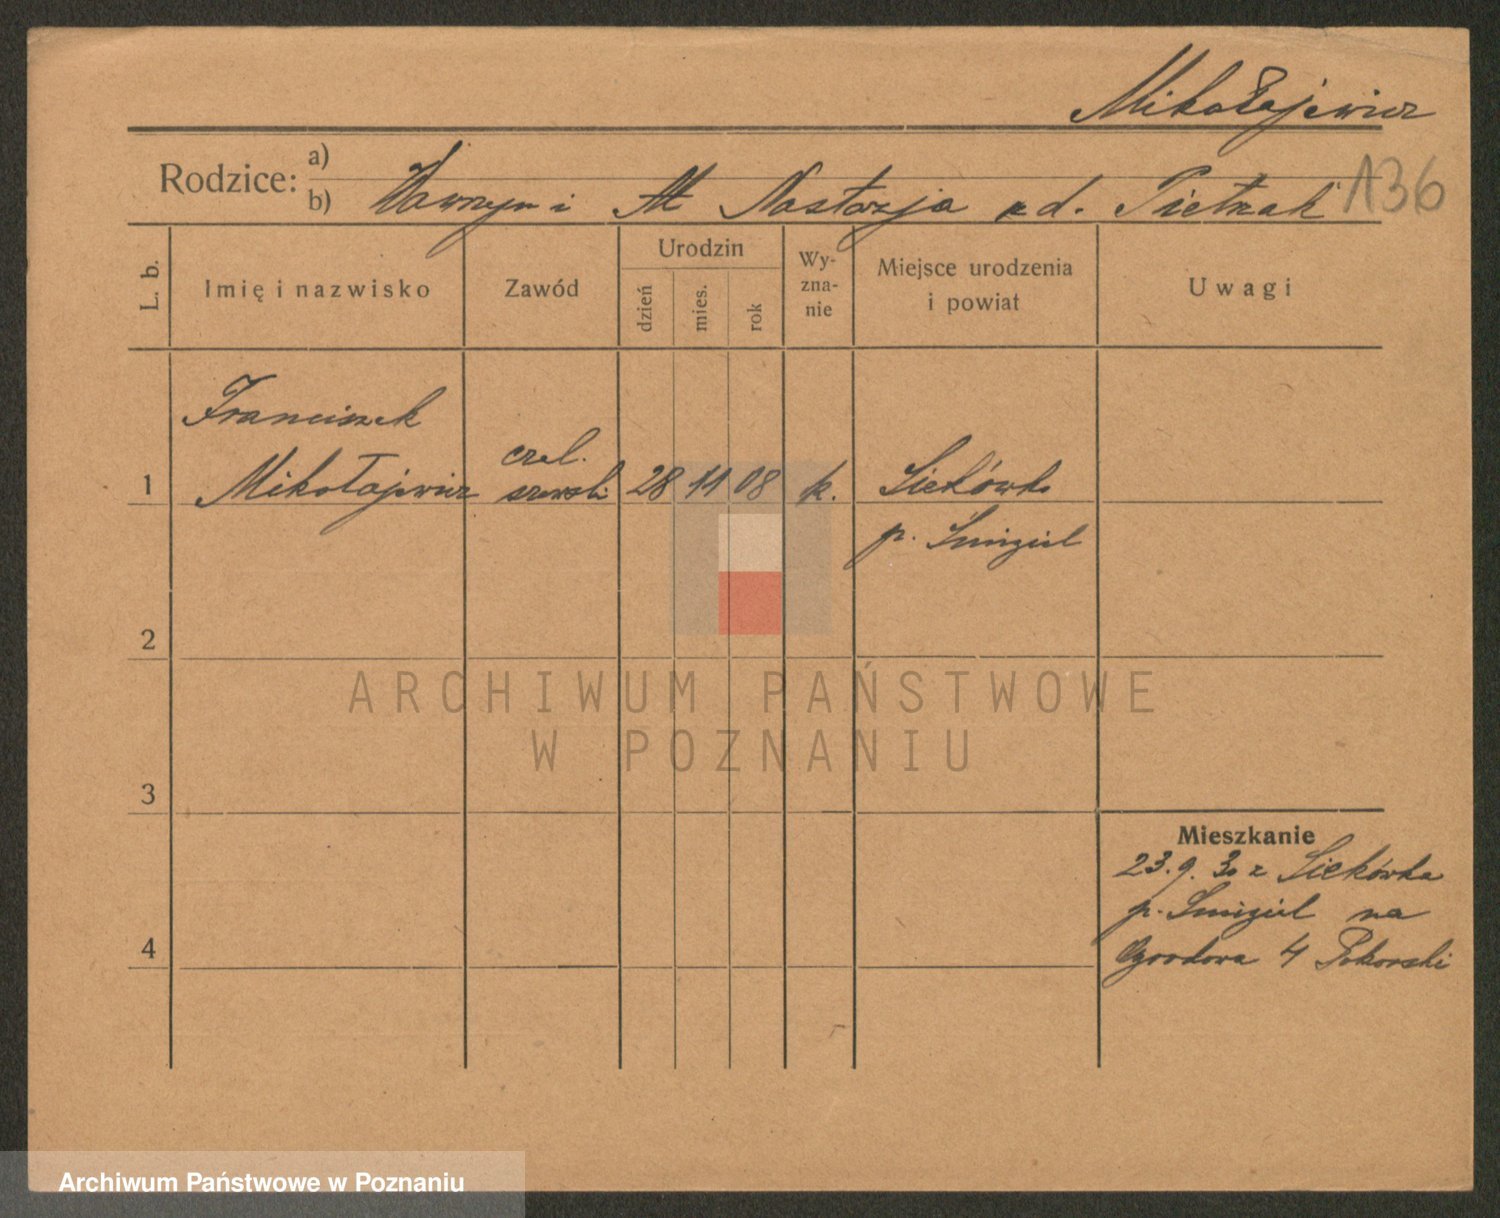 Mikołajewicz
Rodzice: a)
b) Wawrzyn i Nastazja d. Pietrzak
136
L. b.
Imię i nazwisko
Zawód
Urodzin
dzień
mies.
rok
Wy-
zna-
nie
Miejsce urodzenia
i powiat
Uwagi
Franciszek
1 Mikołajewicz
czel.
szewski
28 11 08 k.
Siekówko
p. Śmigiel
2
3
4
Mieszkanie
23.9.30 z Siekówka
p. Śmigiel na
Ogrodowa 4 Pokorski
ARCHIWUM PAŃSTWOWE
W POZNANIU
Archiwum Państwowe w Poznaniu